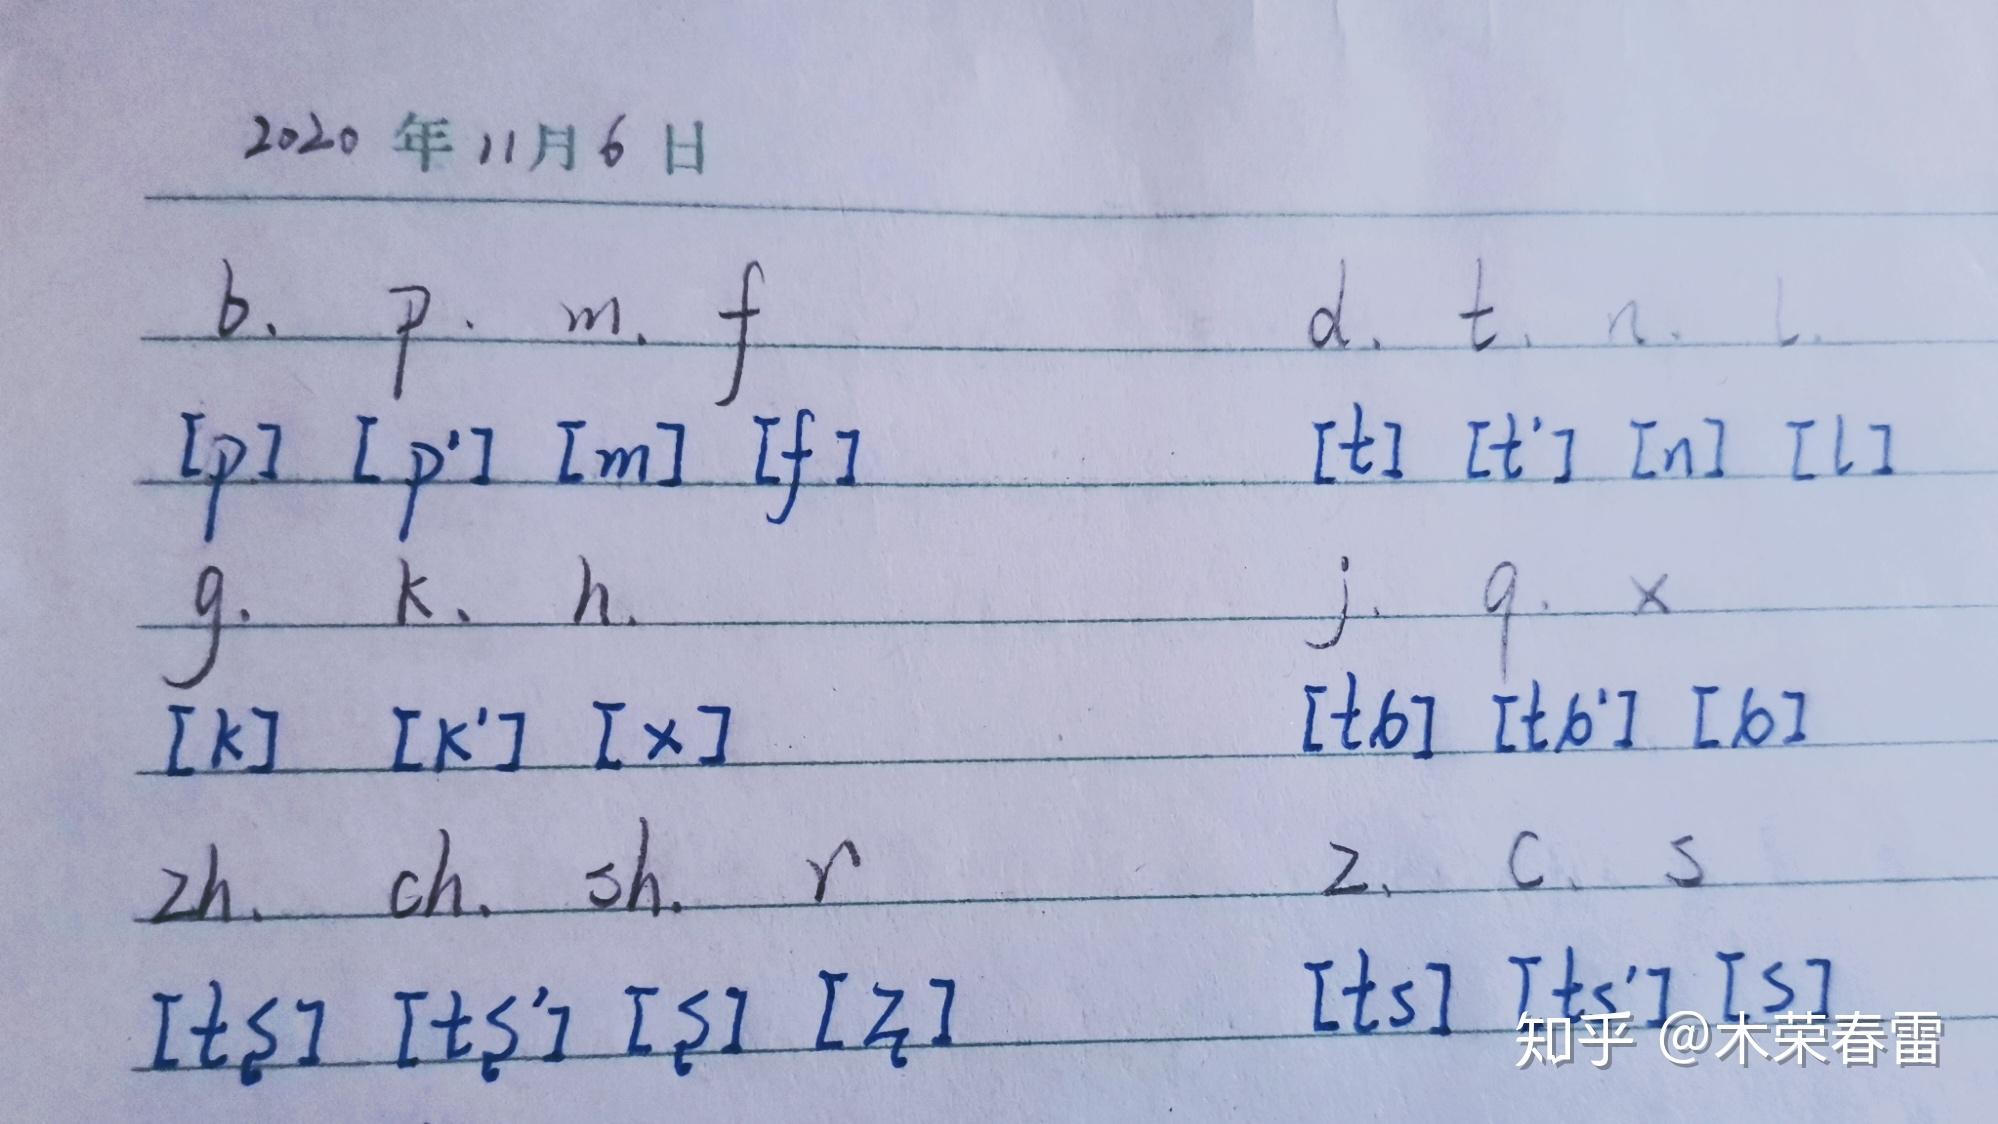 2020 年 11 月 6 日
b. p. m. f d. t. n. l.
[p] [p'] [m] [f] [t] [t'] [n] [l]
g. k. h. j. q. x
[k] [k'] [x] [tɕ] [tɕ'] [ɕ]
zh. ch. sh. r z. c. s
[tʂ] [tʂ'] [ʂ] [ʐ] [ts] [ts'] [s]
知乎 @木荣春雷